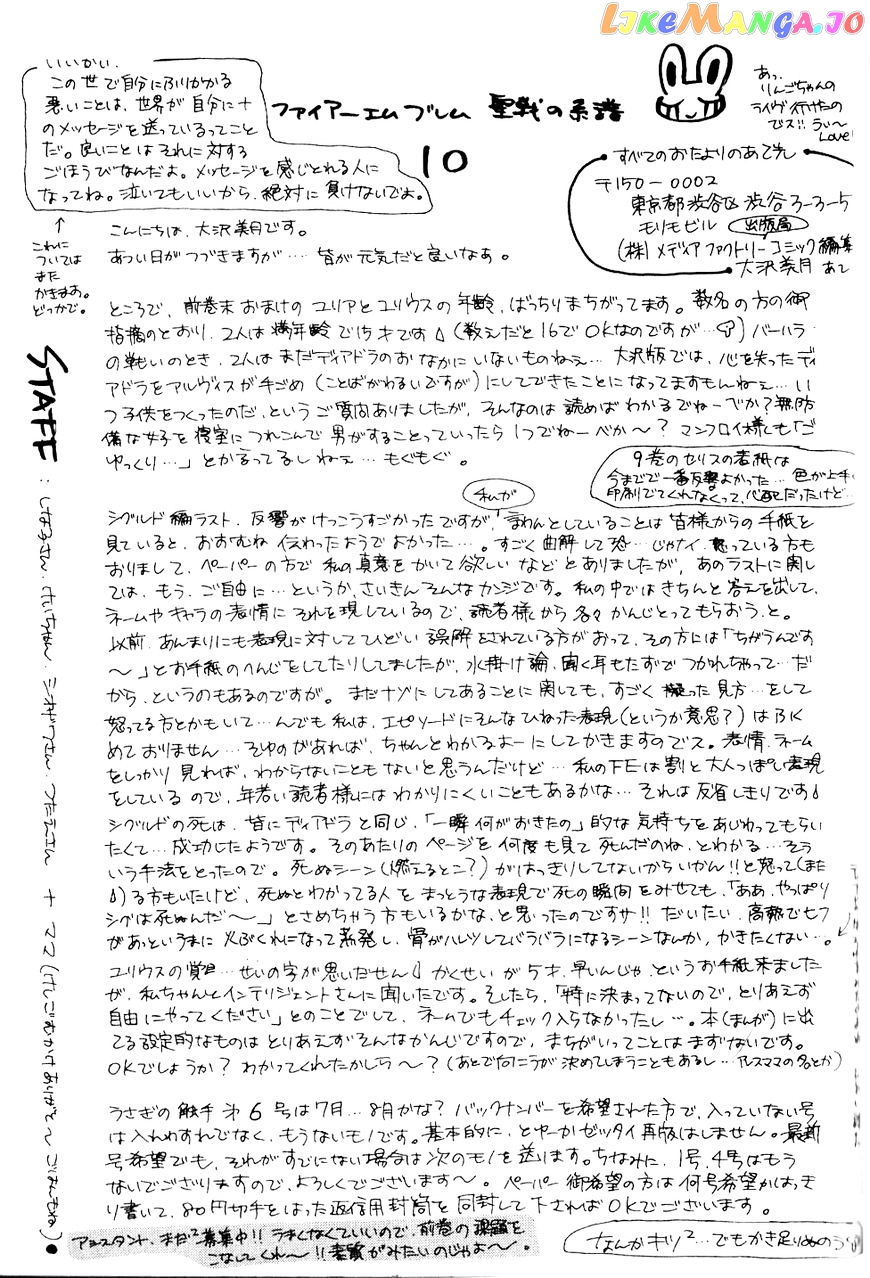 LIKEMANGA.IO
いいかい、
この世で自分にふりかかる
悪いことは、世界が自分に+
のメッセージを送っているってこと
だ。良いことはそれに対する
ごほうびなんだよ。メッセージを感じとれる人に
なってね。泣いてもいいから、絶対に負けないでよ。
↑
これに
ついては
また
かきますね。
どっかで。
ファイアーエムブレム 聖戦の系譜
10
あっ、
りんごちゃんの
ライヴ行けたの
でス!! うぃ〜
Love
すべてのおたよりのあて先
〒150-0002
東京都渋谷区渋谷3-3-5
モリモビル 出版局
(株)メディアファクトリーコミック編集
大沢美月 あて
こんにちは、大沢美月です。
あつい日がつづきますが… 皆が元気だと良いなあ。
ところで、前巻末おまけのユリアとユリウスの年齢、ばっちりまちがってます。数名の方の御
指摘のとおり、2人は満年齢で15才です(数えだと16でOKなのですが…)バーハラ
の戦いのとき、2人はまだディアドラのおなかにいないものねぇ… 大沢版では、心を失ったディ
アドラをアルヴィスが手ごめ(ことばがわるいですが)にしてできたことになってますもんねぇ… い
つ子供をつくったのだ、というご質問ありましたが、そんなのは読めばわかるでねーべか?無防
備な女子を寝室につれこんで男がすることっていったら1つでねーべか〜? マンフロイ様も「ご
ゆっくり…」とかゆってるしねぇ… もぐもぐ。
9巻のセリスの表紙は
今までで一番反響よかった… 色が上手く
印刷でてくれなくって、心配だったけど…
シグルド編ラスト、反響がけっこうすごかったですが、私が言わんとしていることは皆様からの手紙を
見ていると、おおむね伝わったようでよかった…。すごく曲解して恐…じゃナイ、怒っている方も
おりまして、ペーパーの方で私の真意をかいて欲しいなどとありましたが、あのラストに関し
ては、もう、ご自由に…というか、さいきんそんなカンジです。私の中ではきちんと答えを出して、
ネームやキャラの表情にそれを現しているので、読者様から各々かんじとってもらおう、と。
以前、あんまりにも表現に対してひどい誤解をされている方がおって、その方には「ちがうんです
〜」とお手紙のへんじをしてたりしてましたが、水掛け論、聞く耳もたずでつかれちゃって…だ
から、というのもあるのですが。まだナゾにしてあることに関しても、すごく凝った見方…をして
怒ってる方とかもいて…んでも私は、エピソードにそんなひねった表現(というか意思?)はひく
めておりません…そゆのがあれば、ちゃんとわかるよーにしてかきますのでス。表情、ネーム
をしっかり見れば、わからないこともないと思うんだけど… 私のFEは割と大人っぽい表現
をしているので、年若い読者様にはわかりにくいこともあるかな… それは反省しきりです
シグルドの死は、皆にディアドラと同じ、「一瞬何がおきたの」的な気持ちをあじわってもらい
たくて…成功したようです。そのあたりのページを何度も見て死んだのね、とわかる…そう
いう手法をとったので。死ぬシーン(燃えるとこ?)がはっきりしてないからいかん!!と怒って(また
)る方もいたけど、死ぬとわかってる人をまっとうな表現で死の瞬間をみせても、「ああ、やっぱり
シグは死ぬんだ〜」とさめちゃう方もいるかな、と思ったのですサ!! だいたい、高熱でヒフ
があっというまに火ぶくれになって蒸発し、骨がハレツしてバラバラになるシーンなんか、かきたくない…。
ユリウスの覚… せいの字が思いだせん かくせいが5才、早いんじゃ、というお手紙来ました
が、私ちゃんとインテリジェントさんに聞いたです。そしたら、「特に決まってないので、とりあえず
自由にやってください」とのことでして、ネームでもチェック入らなかったし…。本(まんが)に出
てる設定的なものはとりあえずそんなかんじですので、まちがいってことはまずないです。
OKでしょうか? わかってくれたかしら〜?(あとで向こうが決めてしまうこともあるし…アレスママの名とか)
うさぎの触手 第6号は7月…8月かな? バックナンバーを希望された方で、入っていない号
は入れわすれでなく、もうないもノです。基本的に、とゆーかゼッタイ再版はしません。最新
号希望でも、それがすでにない場合は次のモノを送ります。ちなみに、1号、4号はもう
ないでござりますので、よろしくでございます〜。ペーパー御希望の方は何号希望かはっき
り書いて、80円切手をはった返信用封筒を同封して下さればOKでございます。
アシスタント、まだ²募集中!! うまくなくていいので、前巻の課題を
こなしてくれ〜!! 素質がみたいのじゃよ〜。
なんかキツ²…でもかき足りぬのう
STAFF:しなるさん、けいちゃん、
つたえさん + ママ(けしごむかけありがと〜 ごはんもね)